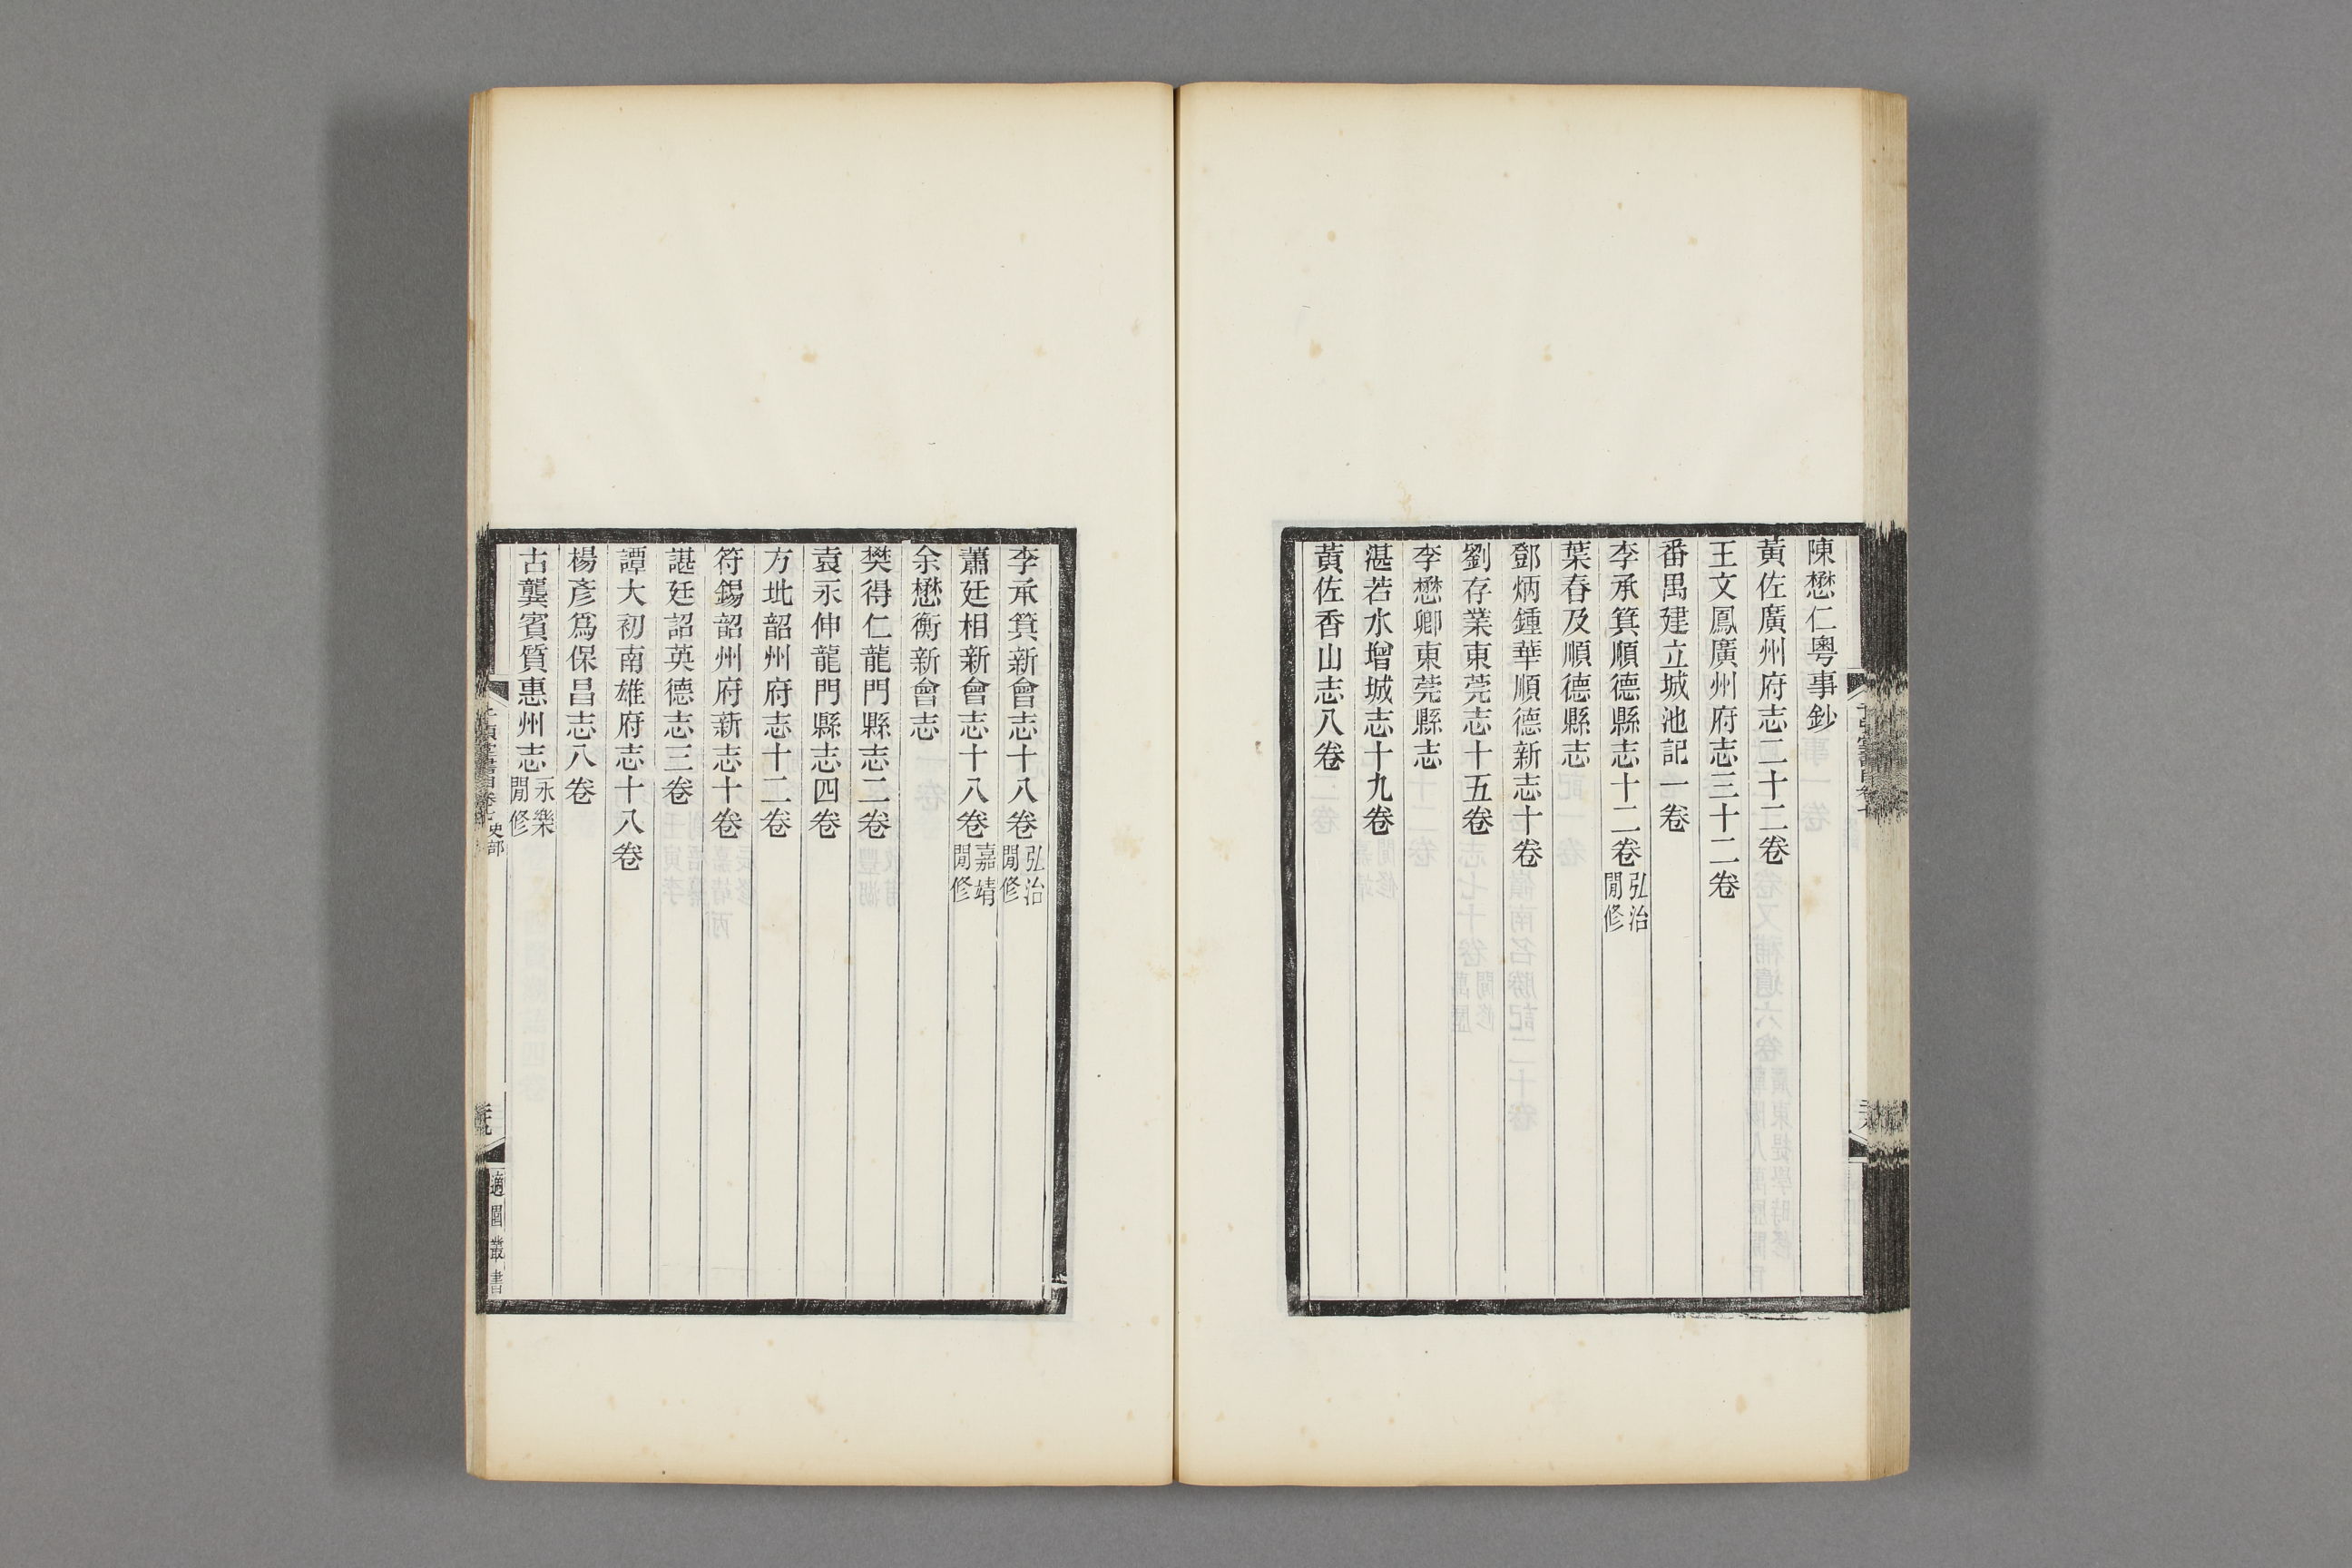 陳懋仁粵事鈔
黃佐廣州府志二十二卷
王文鳳廣州府志三十二卷
番禺建立城池記一卷
李承箕順德縣志十二卷弘治閒修
葉春及順德縣志
鄧炳鍾華順德新志十卷
劉存業東莞志十五卷
李懋卿東莞縣志
湛若水增城志十九卷
黃佐香山志八卷
李承箕新會志十八卷弘治閒修
蕭廷相新會志十八卷嘉靖閒修
余懋衡新會志
樊得仁龍門縣志二卷
袁永伸龍門縣志四卷
方玭韶州府志十二卷
符錫韶州府新志十卷
諶廷詔英德志三卷
譚大初南雄府志十八卷
楊彥爲保昌志八卷
古龔賓質惠州志永樂閒修
千頃堂書目卷七 史部
適園叢書